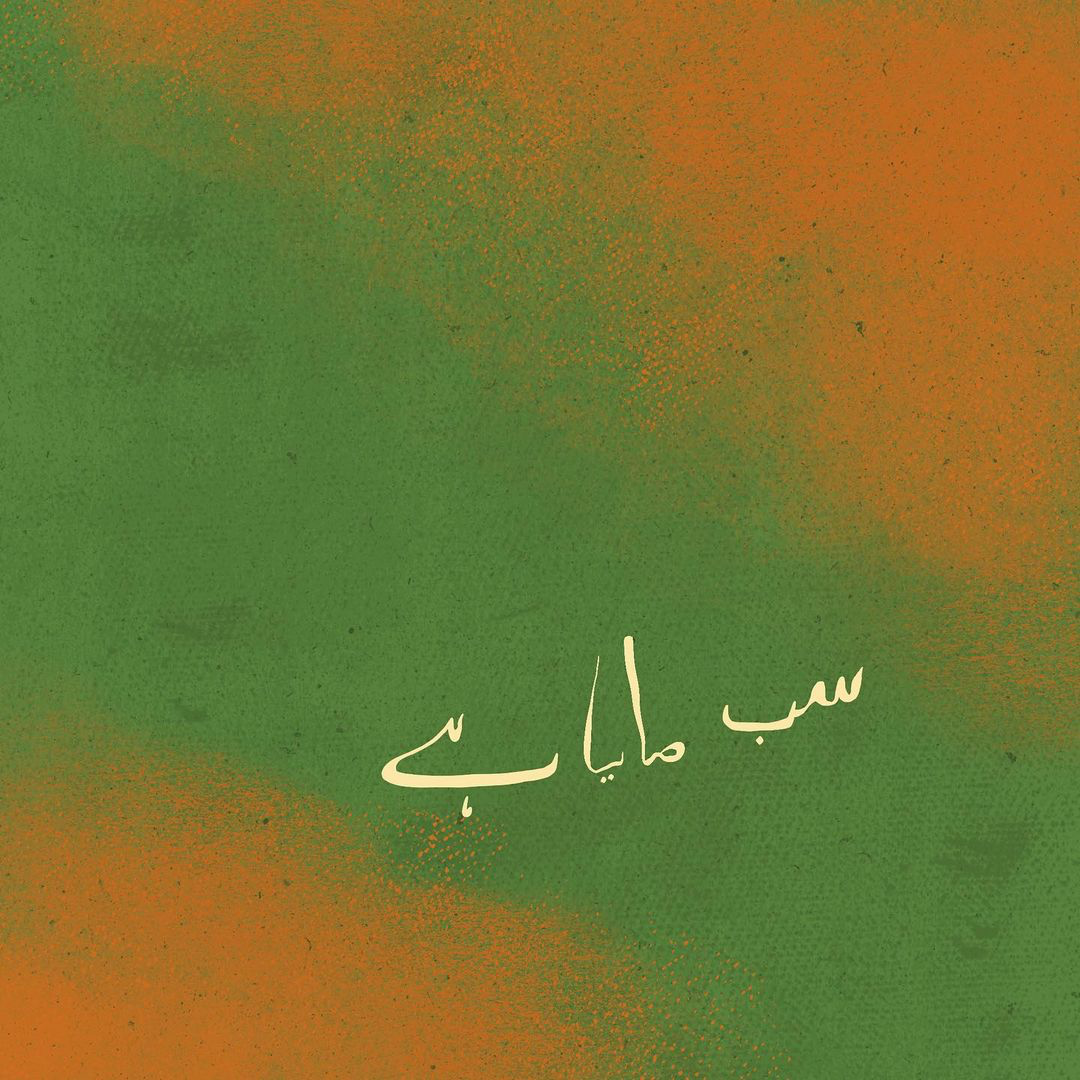 سب مایا ہے